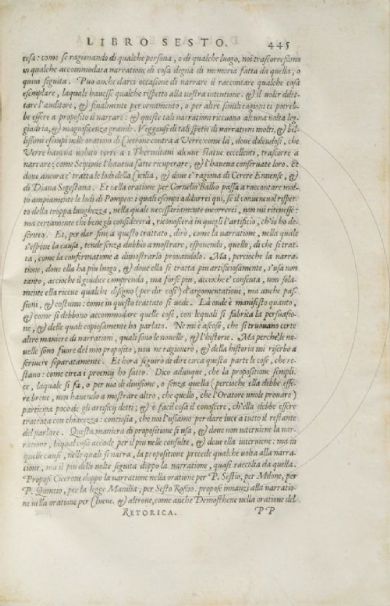 LIBRO SESTO. 445
tesa: come se ragionando di qualche persona, o di qualche luogo, noi trascorressimo
in qualche accommodata narratione di cosa degna di memoria fatta da quella, o
quivi seguita. Puo anche darci occasione di narrare il raccontare qualche caso
essemplare, laquale havesse qualche rispetto alla nostra intentione. & il voler dilet-
tare l'auditore, & finalmente per ornamento, o per altre simili cagioni ti potreb-
be essere a proposito il narrare. & queste tali narrationi riccuono alcuna volta leg-
giadria, & magnificenza grande. Veggonsi di tali spetie di narrationi molti, & bel-
lissimi essempi nelle orationi di Cicerone contra a Verre come là, dove dolendosi, che
Verre haveva voluto torre a i Thermitani alcune statue eccellenti, trascorre a
narrare, come Scipione l'haveva fatte ricuperare, & l'haveva conservate loro. Et
dove ancora e' tratta le lodi della Sicilia, & dove e' ragiona di Cerere Ennense, &
di Diana Segestana. Et nella oratione per Cornelio Balbo passa a raccontare mol-
to ampiamente le lodi di Pompeo: i quali essempi addurrei qui, se il conuenevol rispet-
to della troppa lunghezza, nella quale necessariamente incorrerei, non mi ritenesse:
ma certamente chi bene gli considererà, riconoscerà in quegli l'artificio, ch'io ho de-
scritto. Et, per dar fine a questo trattato, dirò, come la narratione, nella quale
s'esprime la causa, tende senza dubbio a mostrare, esponendo, quello, di che si trat-
ta, come la confirmatione a dimostrarlo provandolo. Ma, percioche la narra-
tione, dove ella ha piu luogo, & dove ella si tratta piu artificiosamente, s'usa non
tanto, accioche il giudice comprenda, ma forse piu, accioche e' consenta, non sola-
mente ella riceve qualche disegno (per dir così) d'argomentatione, ma anche pas-
sioni, & costume: come in questo trattato si vede. Là onde è manifesto quanto,
& come si debbono accommodare quelle cose, con lequali si fabrica la persuasio-
ne, & delle quali copiosamente ho parlato. Ne mi è ascoso, che si truovano certe
altre maniere di narrationi, quali sono le novelle, & l'historie. Ma perche le no-
velle sono fuore del mio proposito, non ne ragionerò, & della historia mi riserbo a
scrivere separatamente. Et hora seguirò de dire circa questa parte le cose, che re-
stano: come circa i proemij ho fatto. Dico adunque, che la propositione sempli-
ce, laquale si fa, o per uso di divisione, o senza quella (percioche ella debbe esse-
re breve, non havendo a mostrare altro, che quello, che l'Oratore vuole provare)
participa poco de gli artificij detti; & è facil cosa il conoscere, ch'ella debbe essere
trattata con chiarezza: conciosia, che noi l'usiamo per dare luce a tutto il restante
del parlare. Questa maniera di propositione si usa, & dove non interviene la nar-
ratione, laqual cosa accade per il piu nelle consulte, & dove ella interviene: ma in
quelle cause, nelle quali si narra, la propositione precede qualche volta alla narra-
tione, ma il piu delle volte seguita doppo la narratione, quasi raccolta da quella.
Propose Cicerone doppo la narratione nella oratione per P. Sestio, per Milone, per
P. Quintio, per la legge Manilia; per Sesto Roscio propose innanzi alla narratio-
ne nella oratione per Cluent. & altrove, come anche Demosthene nella oratione del-
RETORICA. PP